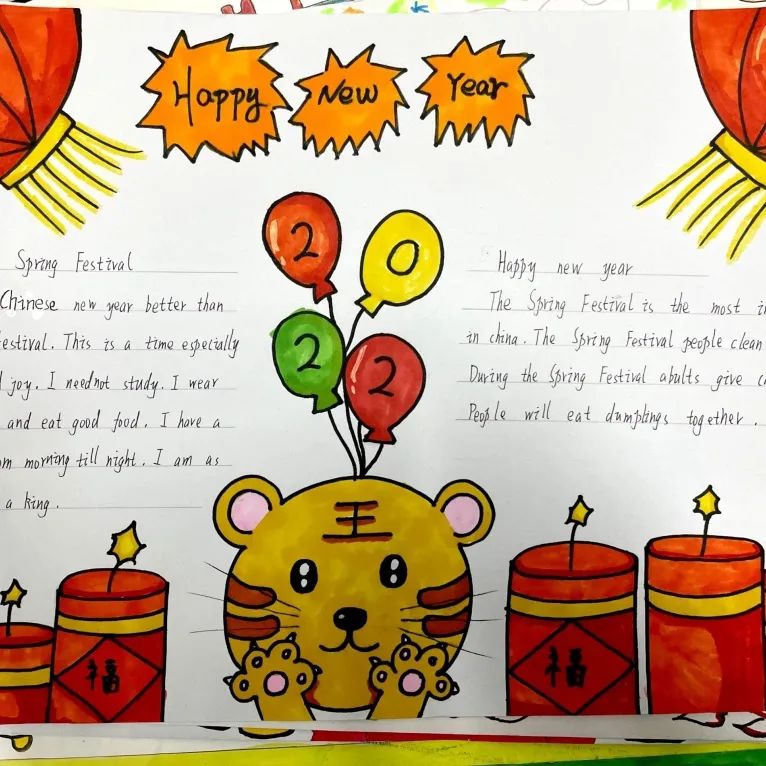 Happy New Year
2 0
2 2
Spring Festival
Chinese new year better than
estival. This is a time especially
joy. I neednot study. I wear
and eat good food. I have a
om morning till night. I am as
a king.
Happy new year
The Spring Festival is the most i
in china. The Spring Festival people clean
During the Spring Festival abults give c
People will eat dumplings together.
王
福
福